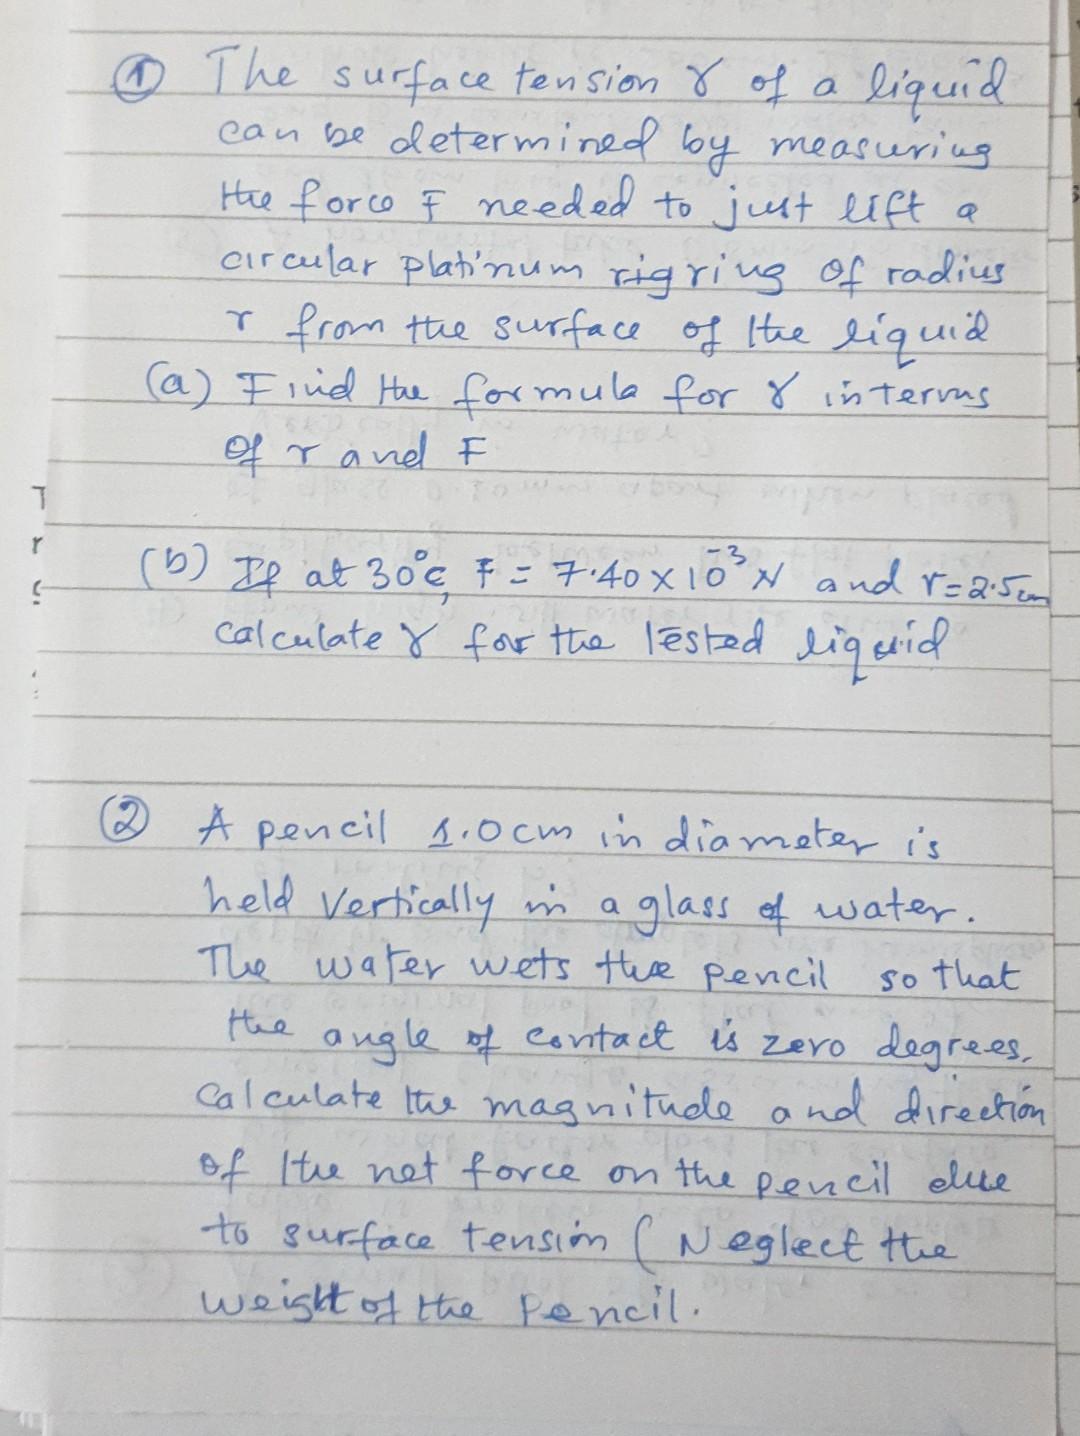 ① The surface tension γ of a liquid
can be determined by measuring
the force F needed to just lift a
circular platinum rig ring of radius
r from the surface of the liquid
(a) Find the formula for γ in terms
of r and F
(b) If at 30°C, F = 7.40 x 10⁻³ N and r=2.5cm
calculate γ for the tested liquid
② A pencil 1.0cm in diameter is
held vertically in a glass of water.
The water wets the pencil so that
the angle of contact is zero degrees.
Calculate the magnitude and direction
of the net force on the pencil due
to surface tension ( Neglect the
weight of the Pencil.